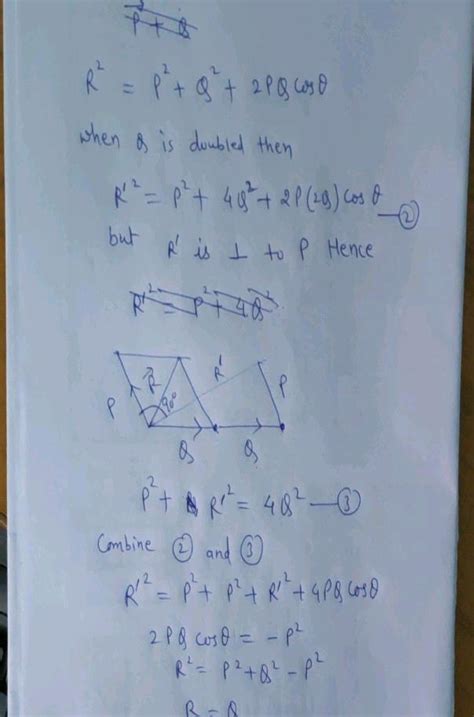 P + Q
R² = P² + Q² + 2PQ cosθ
when Q is doubled then
R'² = P² + 4Q² + 2P(2Q) cosθ —②
but R' is ⊥ to P Hence
R'² = P² + 4Q²
P R 90° R' P
Q Q
P² + R'² = 4Q² —③
Combine ② and ③
R'² = P² + P² + R'² + 4PQ cosθ
2PQ cosθ = -P²
R² = P² + Q² - P²
R = Q